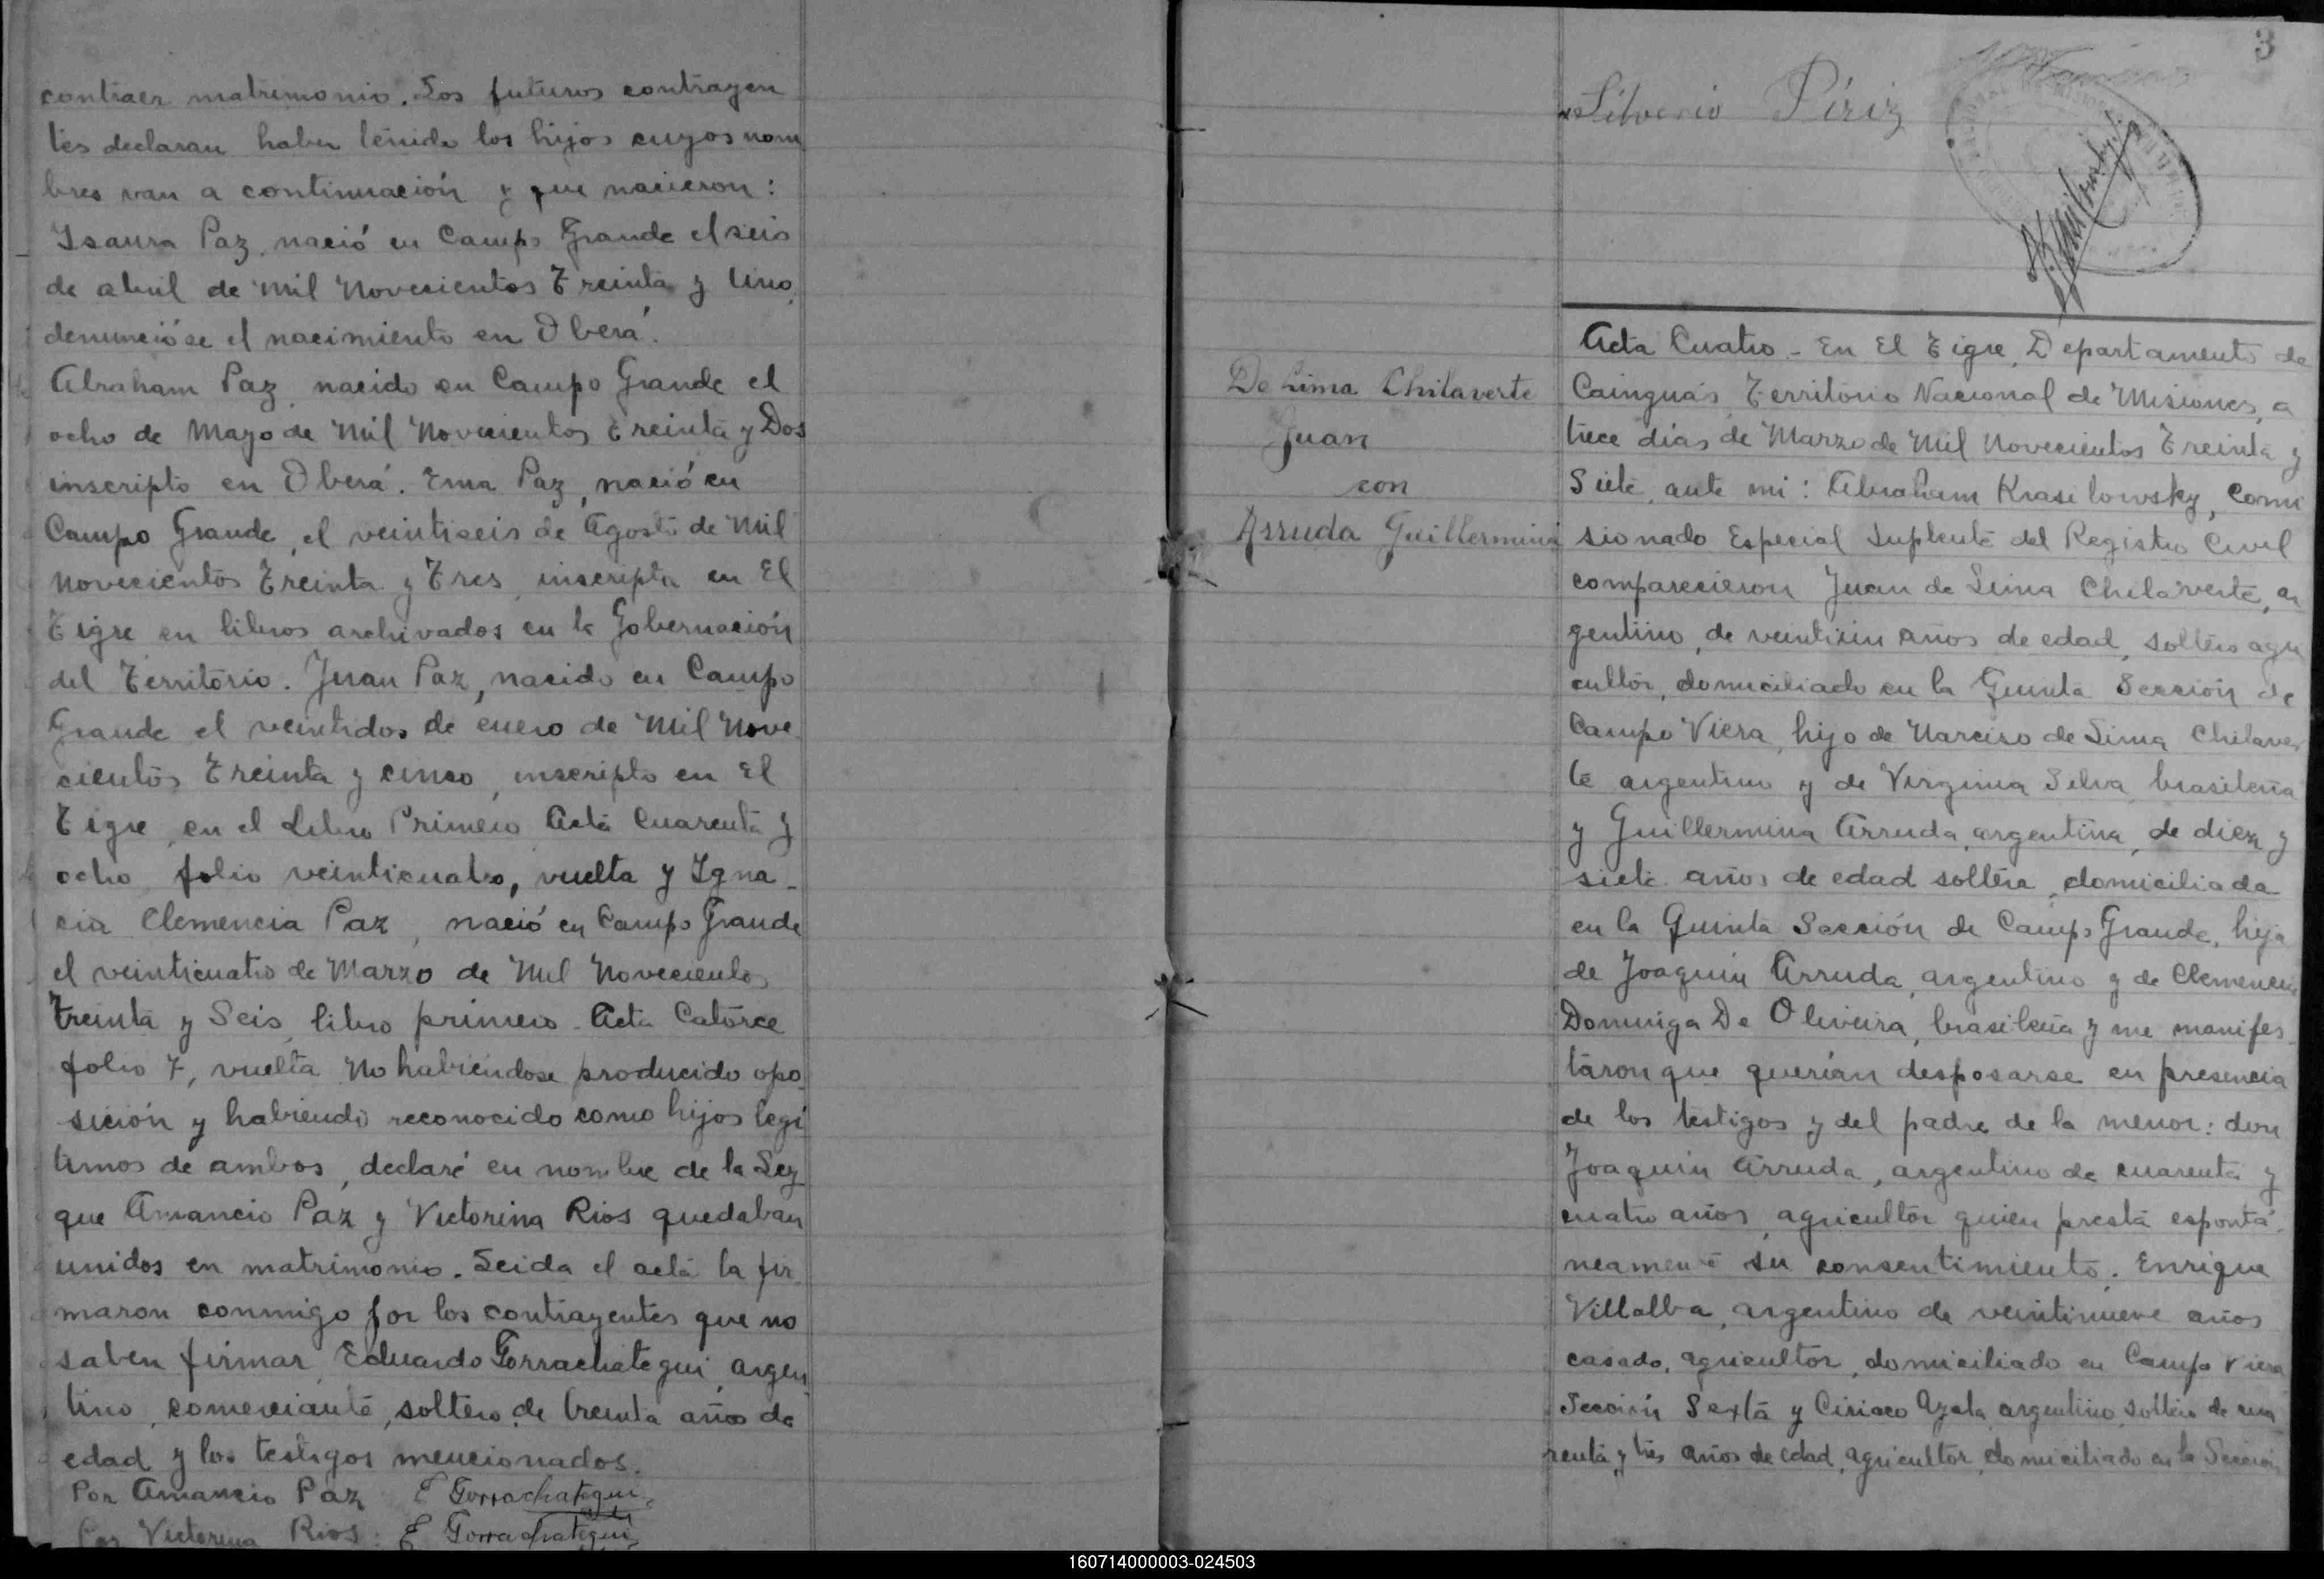 contraer matrimonio. Los futuros contrayen
tes declaran haber tenido los hijos cuyos nom
bres van a continuación y que nacieron:
Isaura Paz, nació en Campo Grande el seis
de abril de Mil Novecientos Treinta y Uno,
denuncióse el nacimiento en Oberá.
Abraham Paz, nacido en Campo Grande el
ocho de Mayo de Mil Novecientos Treinta y Dos
inscripto en Oberá. Ema Paz, nació en
Campo Grande, el veintiseis de Agosto de Mil
Novecientos Treinta y Tres, inscripta en El
Tigre en libros archivados en la Gobernación
del Territorio. Juan Paz, nacido en Campo
Grande el veintidos de enero de Mil Nove
cientos Treinta y cinco, inscripto en El
Tigre, en el Libro Primero Acta Cuarenta y
ocho folio veinticuatro, vuelta y Igna-
cia Clemencia Paz, nació en Campo Grande
el veinticuatro de Marzo de Mil Novecientos
Treinta y Seis, libro primero. Acta Catorce
folio 7, vuelta. No habiéndose producido opo
sición y habiendo reconocido como hijos legí
timos de ambos, declaré en nombre de la Ley
que Amancio Paz y Victorina Rios quedaban
unidos en matrimonio. Leida el acta la fir
maron conmigo por los contrayentes que no
saben firmar, Eduardo Gorrachategui, argen
tino, comerciante, soltero, de treinta años de
edad y los testigos mencionados.
Por Amancio Paz E Gorrachategui
Por Victorina Rios: E Gorrachategui
3
Silverio Píriz
De Lima Chilaverte
Juan
con
Arruda Guillermina
Acta Cuatro - En El Tigre, Departamento de
Cainguás Territorio Nacional de Misiones, a
trece días de Marzo de Mil Novecientos Treinta y
Siete, ante mi: Abraham Krasilowsky, Comi
sionado Especial Suplente del Registro Civil
comparecieron Juan de Lima Chilaverte, ar
gentino, de veintiun años de edad, soltero agri
cultor, domiciliado en la Quinta Sección de
Campo Viera, hijo de Narciso de Lima Chilaver
te argentino y de Virginia Silva, brasileña
y Guillermina Arruda, argentina, de diez y
siete años de edad soltera, domiciliada
en la Quinta Sección de Campo Grande, hija
de Joaquin Arruda, argentino y de Clemencia
Dominga De Oliveira, brasileña y me manifes
taron que querían desposarse en presencia
de los testigos y del padre de la menor: don
Joaquin Arruda, argentino de cuarenta y
cuatro años, agricultor quien presta espontá
neamente su consentimiento. Enrique
Villalba, argentino de veintinueve años
casado, agricultor, domiciliado en Campo Viera
Sección Sexta y Ciriaco Ayala, argentino, soltero de cua
renta y tres años de edad, agricultor, domiciliado en la Sección
160714000003-024503